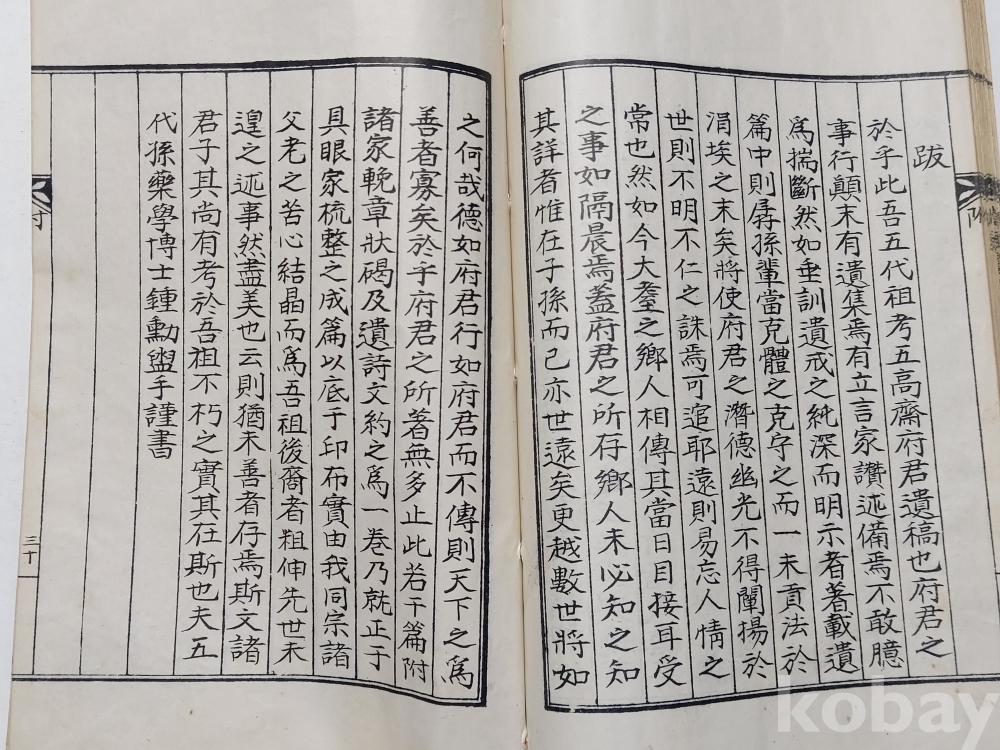 跋
於乎此吾五代祖考五高齋府君遺稿也府君之
事行顛末有遺集焉有立言家讚述備焉不敢臆
爲揣斷然如垂訓遺戒之純深而明示者著載遺
篇中則孱孫輩當克體之克守之而一未貢法於
涓埃之末矣將使府君之潛德幽光不得闡揚於
世則不明不仁之誅焉可逭耶遠則易忘人情之
常也然如今大耋之鄉人相傳且當日目接耳受
之事如隔晨焉蓋府君之所存鄉人未必知之知
其詳者惟在子孫而已亦世遠矣更越數世將如
之何哉德如府君行如府君而不傳則天下之爲
善者寡矣於乎府君之所著無多止此若干篇附
諸家輓章狀碣及遺詩文約之爲一卷乃就正于
具眼家梳整之成篇以底于印布實由我同宗諸
父老之苦心結晶而爲吾祖後裔者粗伸先世未
遑之述事然盡美也云則猶未善者存焉斯文諸
君子其尚有考於吾祖不朽之實其在斯也夫五
代孫藥學博士鍾勳盥手謹書
三十
kobay